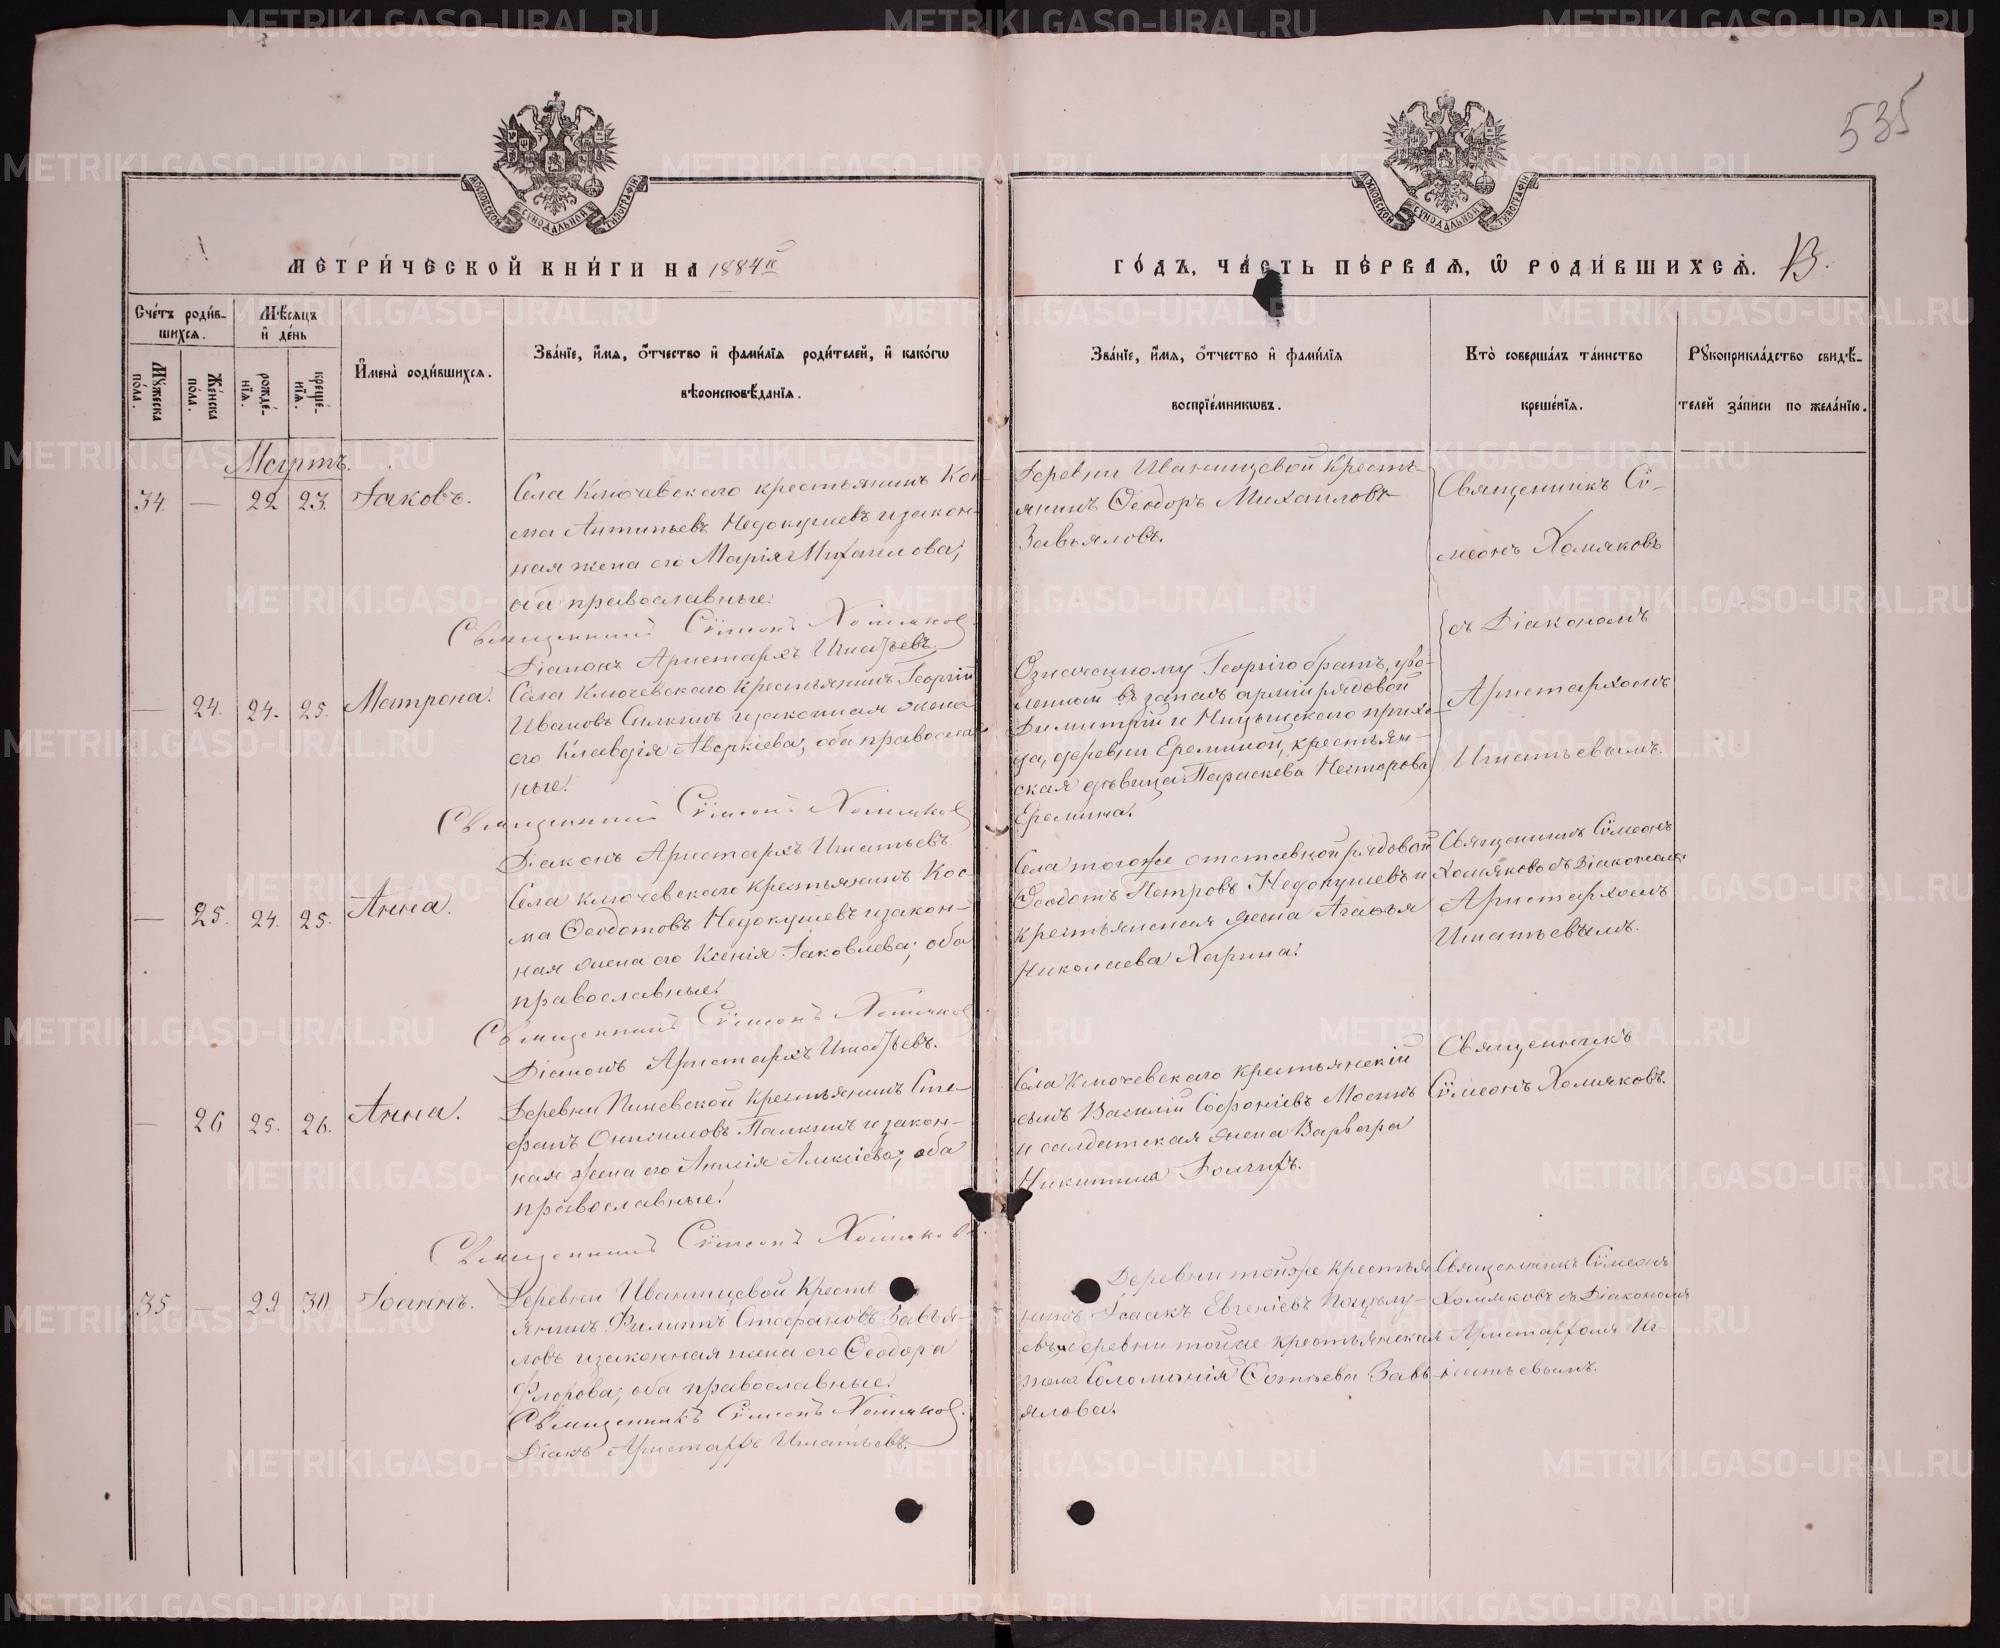 535
МОСКОВСКОЙ СѴНОДАЛЬНОЙ ТИПОГРАФІИ
МОСКОВСКОЙ СѴНОДАЛЬНОЙ ТИПОГРАФІИ
МЕТРИ́ЧЕСКОЙ КНИ́ГИ НА 1884й
ГО́ДЪ, ЧА́СТЬ ПЕ́РВАѦ, Ѡ РОДИ́ВШИХСѦ. 13.
Сче́тъ роди́в-
шихсѧ.
Мѣ́сѧцъ
и҆ де́нь
Мꙋжеска
по́ла.
Же́нска
по́ла.
рожде́-
нїѧ.
креще́-
нїѧ.
И҆мена̀ роди́вшихсѧ.
Зва́нїе, и҆́мѧ, о҆́тчество и҆ фами́лїѧ роди́телей, и҆ како́гѡ
вѣроисповѣ́данїѧ.
Зва́нїе, и҆́мѧ, о҆́тчество и҆ фами́лїѧ
воспрїе́мникѡвъ.
Кто̀ соверша́лъ та́инство
креще́нїѧ.
Рꙋкоприкла́дство свидѣ́-
телей за́писи по жела́нїю.
Мартъ.
34. — 22 23. Іаковъ.
Села Ключевскаго крестьянинъ Коз-
ма Антипьевъ Недокушевъ и закон-
ная жена его Марія Михаилова;
оба православные.
Священникъ Сѵмеонъ Хомяковъ
Діаконъ Аристархъ Игнатьевъ.
Деревни Иванищевой кресть-
янинъ Ѳеодоръ Михаиловъ
Завьяловъ.
Священникъ Сѵ-
меонъ Хомяковъ
съ Діакономъ
Аристархомъ
Игнатьевымъ.
— 24. 24. 25. Матрона.
Села Ключевскаго крестьянинъ Георгій
Ивановъ Силкинъ и законная жена
его Клавдія Аверкіева; оба православ-
ные.
Священникъ Сѵмеонъ Хомяковъ
Діаконъ Аристархъ Игнатьевъ.
Означенному Георгію братъ, уво-
ленный въ запасъ арміи рядовой
Димитрій и Ницынскаго прихо-
да, деревни Ереминой, крестьян-
ская дѣвица Параскева Несторова
Еремина.
— 25. 24. 25. Анна.
Села Ключевскаго крестьянинъ Кос-
ма Ѳеодотовъ Недокушевъ и закон-
ная жена его Ксенія Іаковлева; оба
православные.
Священникъ Сѵмеонъ Хомяковъ
Діаконъ Аристархъ Игнатьевъ.
Села тогоже отставной рядовой
Ѳеодотъ Петровъ Недокушевъ и
крестьянская жена Агаѳья
Николаева Харина.
Священникъ Сѵмеонъ
Хомяковъ съ Діакономъ
Аристархомъ
Игнатьевымъ.
— 26 25. 26. Анна.
Деревни крестьянинъ Сте-
фанъ Онисимовъ Палкинъ и закон-
ная жена его Анисія Алексіева; оба
православные.
Священникъ Сѵмеонъ Хомяковъ.
Села Ключевскаго крестьянскій
сынъ Василій Софоніевъ Мосинъ
и солдатская жена Варвара
Никитина Долгихъ.
Священникъ
Сѵмеонъ Хомяковъ.
35 — 29. 30. Іоаннъ.
Деревни Иванищевой кресть
янинъ Филиппъ Стефановъ Завья-
ловъ и законная жена его Ѳеодора
Флорова; оба православные.
Священникъ Сѵмеонъ Хомяковъ.
Діаконъ Аристархъ Игнатьевъ.
Деревни тойже крестья
нинъ Исаакъ Евгеніевъ Поцелу-
евъ и деревни тойже крестьянская
жена Соломанія Завь-
ялова.
Священникъ Сѵмеонъ
Хомяковъ съ Діакономъ
Аристархомъ Иг-
натьевымъ.
METRIKI.GASO-URAL.RU